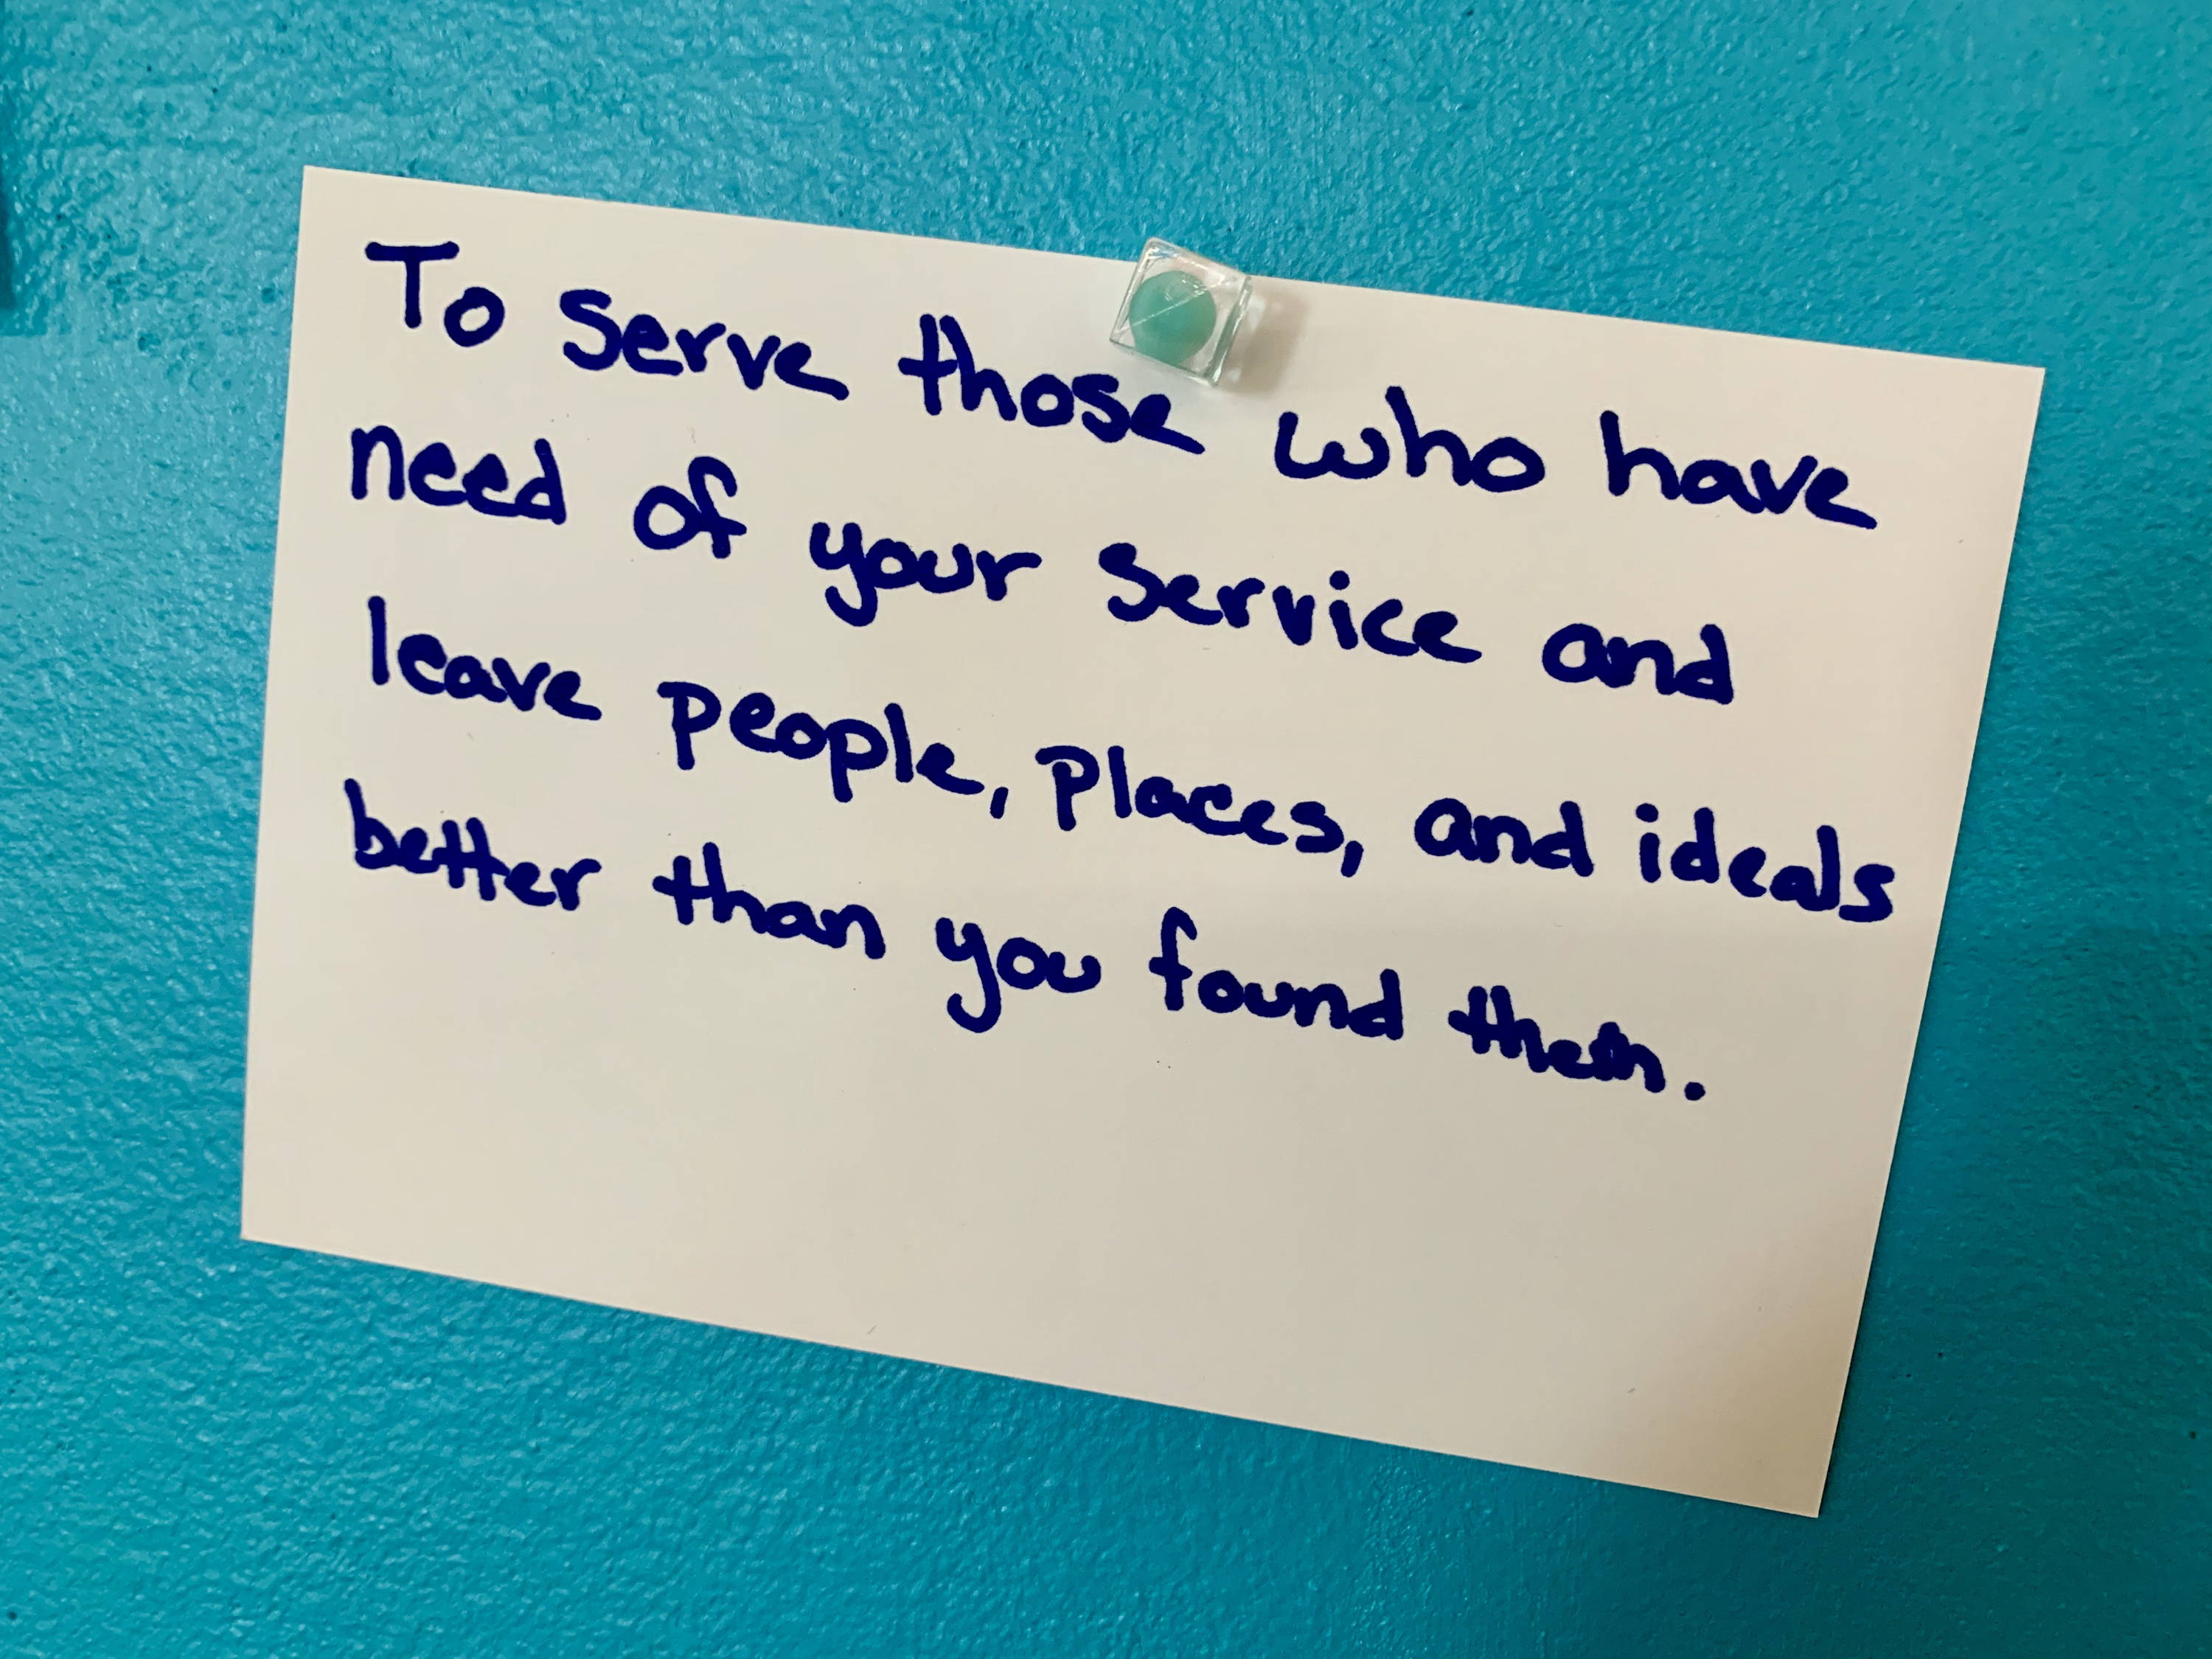 To serve those who have
need of your service and
leave people, places, and ideals
better than you found them.